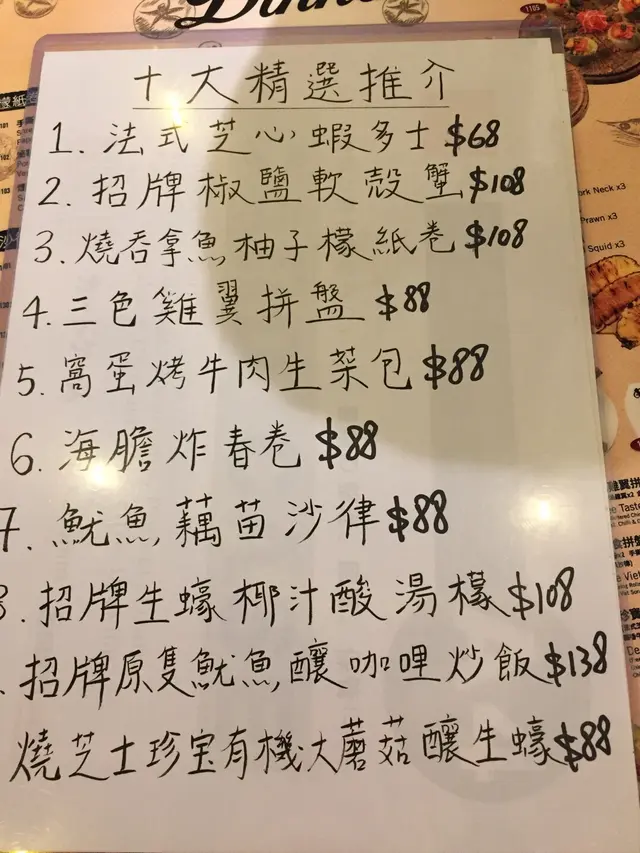 Dinner
十大精選推介
1. 法式芝心蝦多士 $68
2. 招牌椒鹽軟殼蟹 $108
3. 燒吞拿魚柚子檬紙卷 $108
4. 三色雞翼拼盤 $88
5. 窩蛋烤牛肉生菜包 $88
6. 海膽炸春卷 $88
7. 魷魚藕苗沙律 $88
8. 招牌生蠔椰汁酸湯檬 $108
招牌原隻魷魚釀咖哩炒飯 $138
燒芝士珍宝有機大蘑菇釀生蠔 $88
1105
檬紙卷
101
102
103
ork Neck x3
Prawn x3
Squid x3
雞翼拼